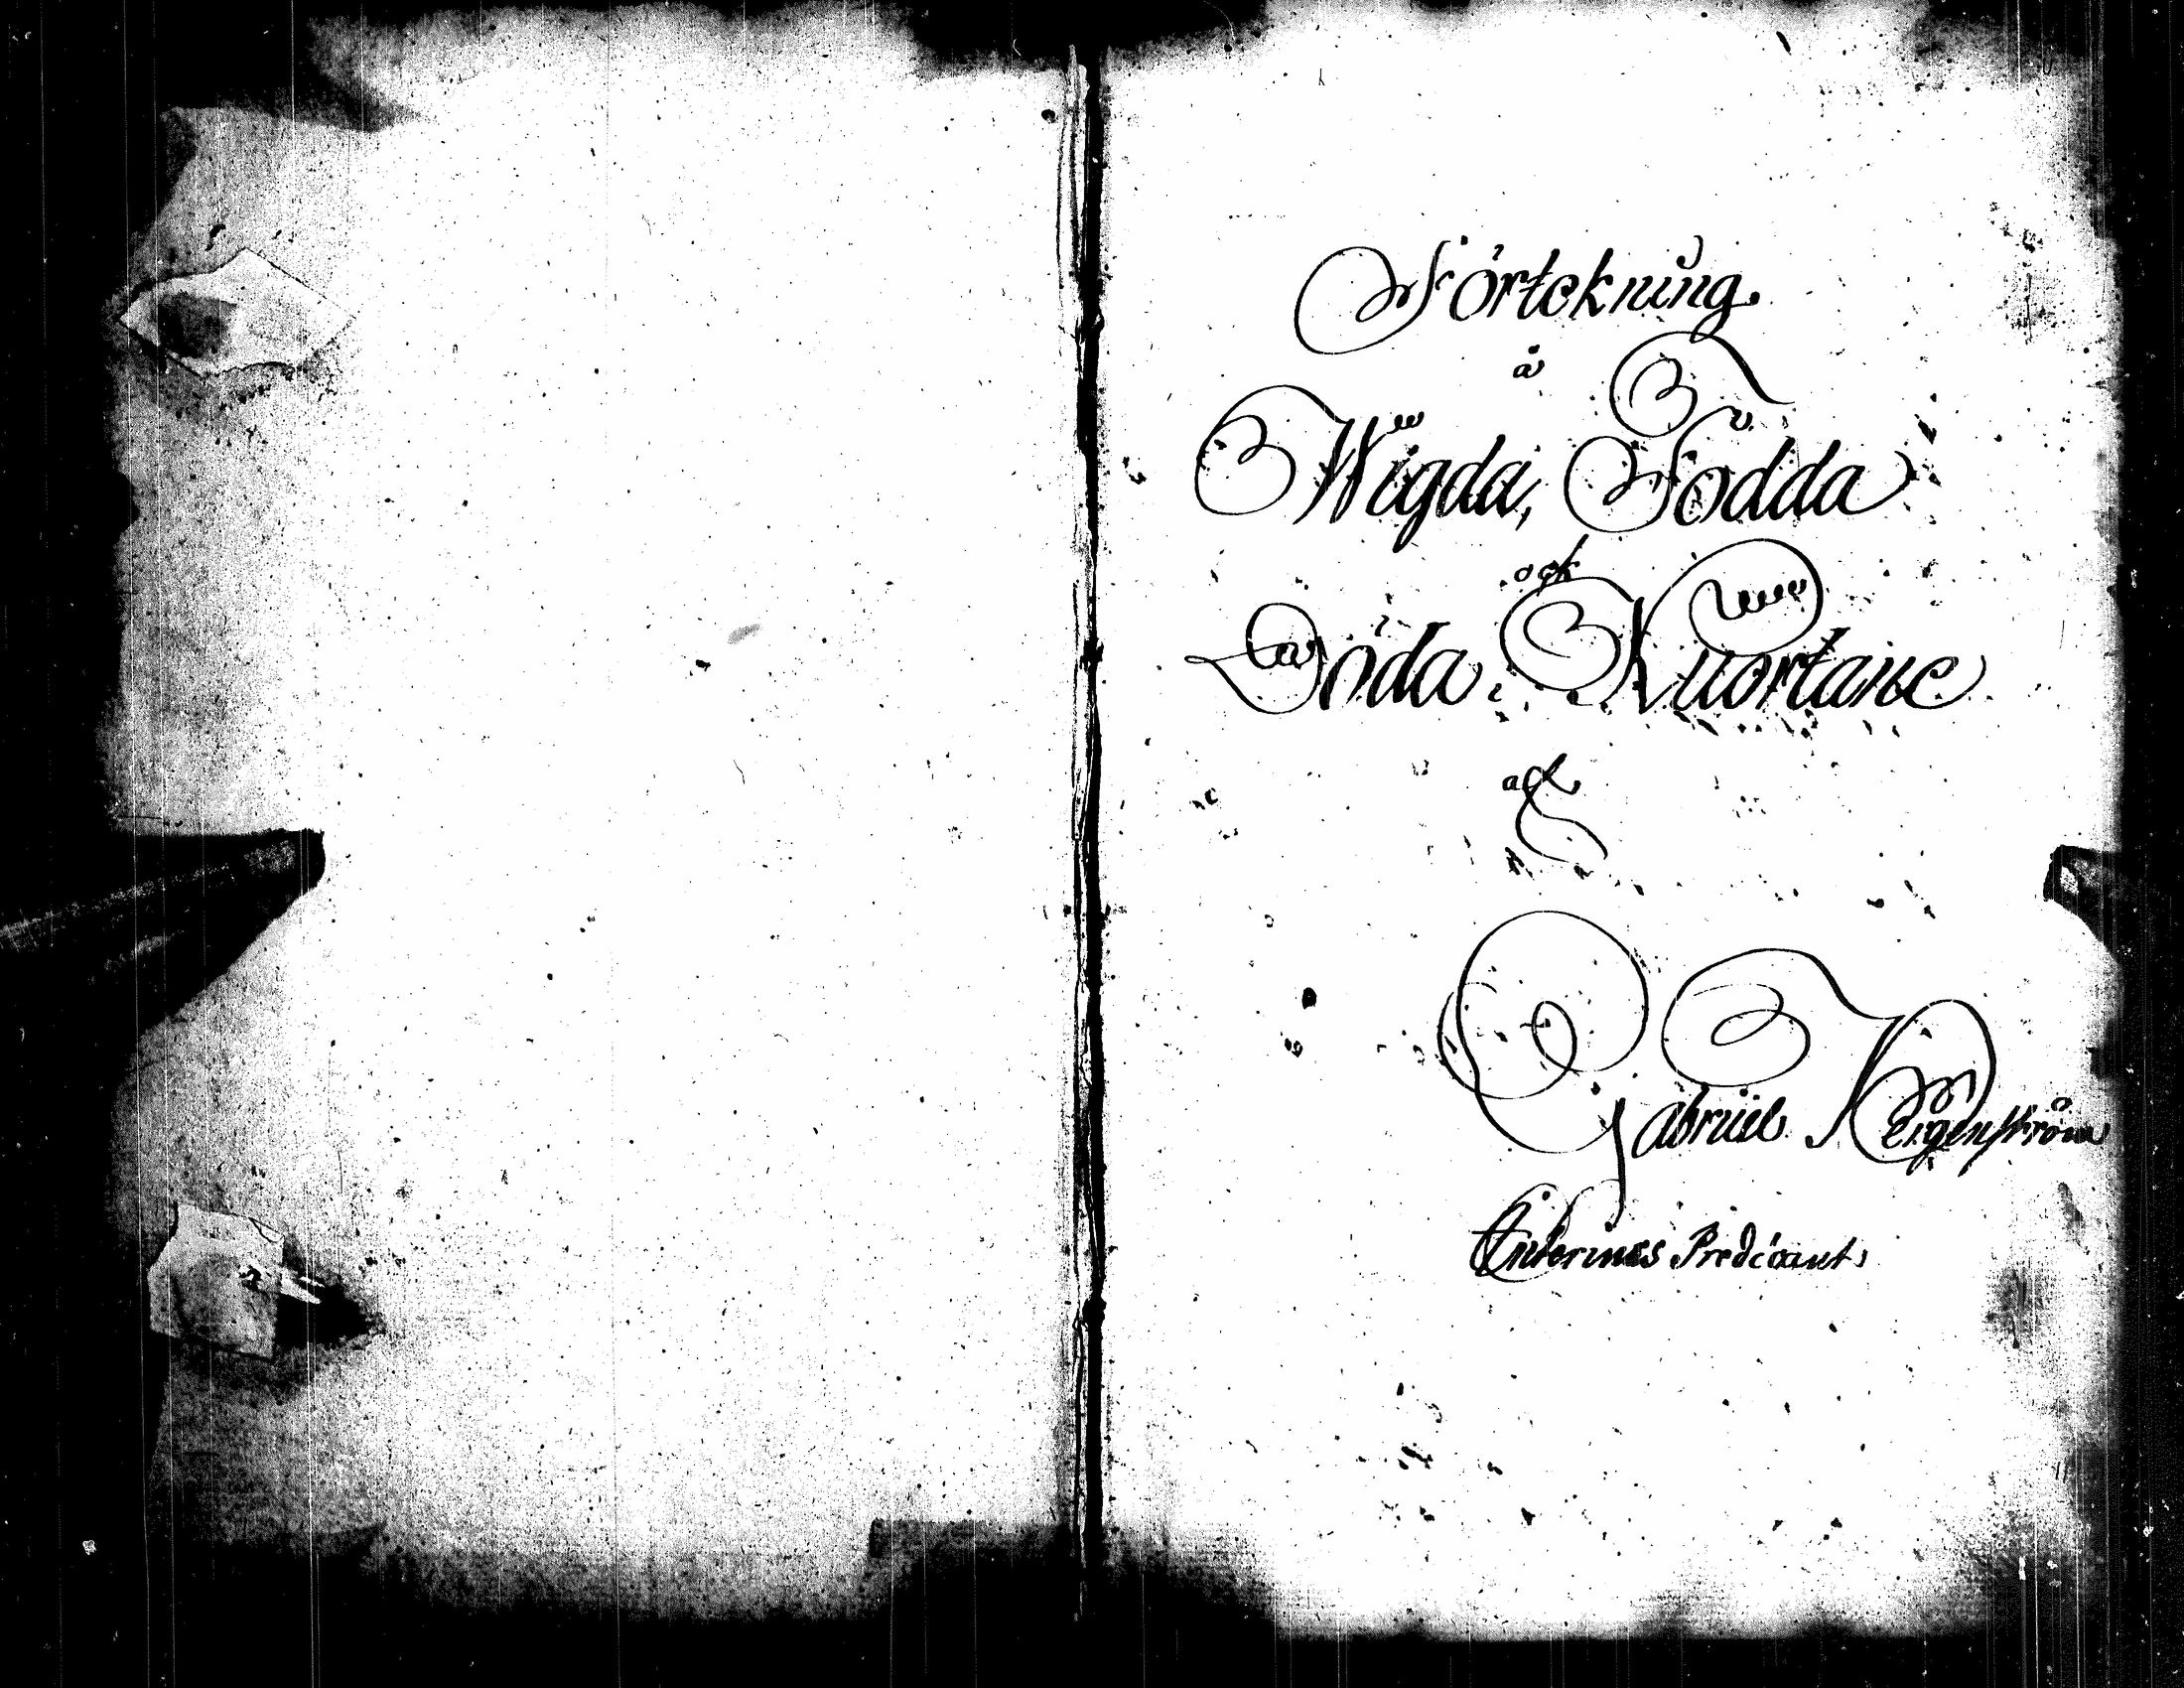 Förtekning
å
Wigda, Födda
ock
Döda i Kuortane
af
Gabriel Keigenström
Interims Predicant